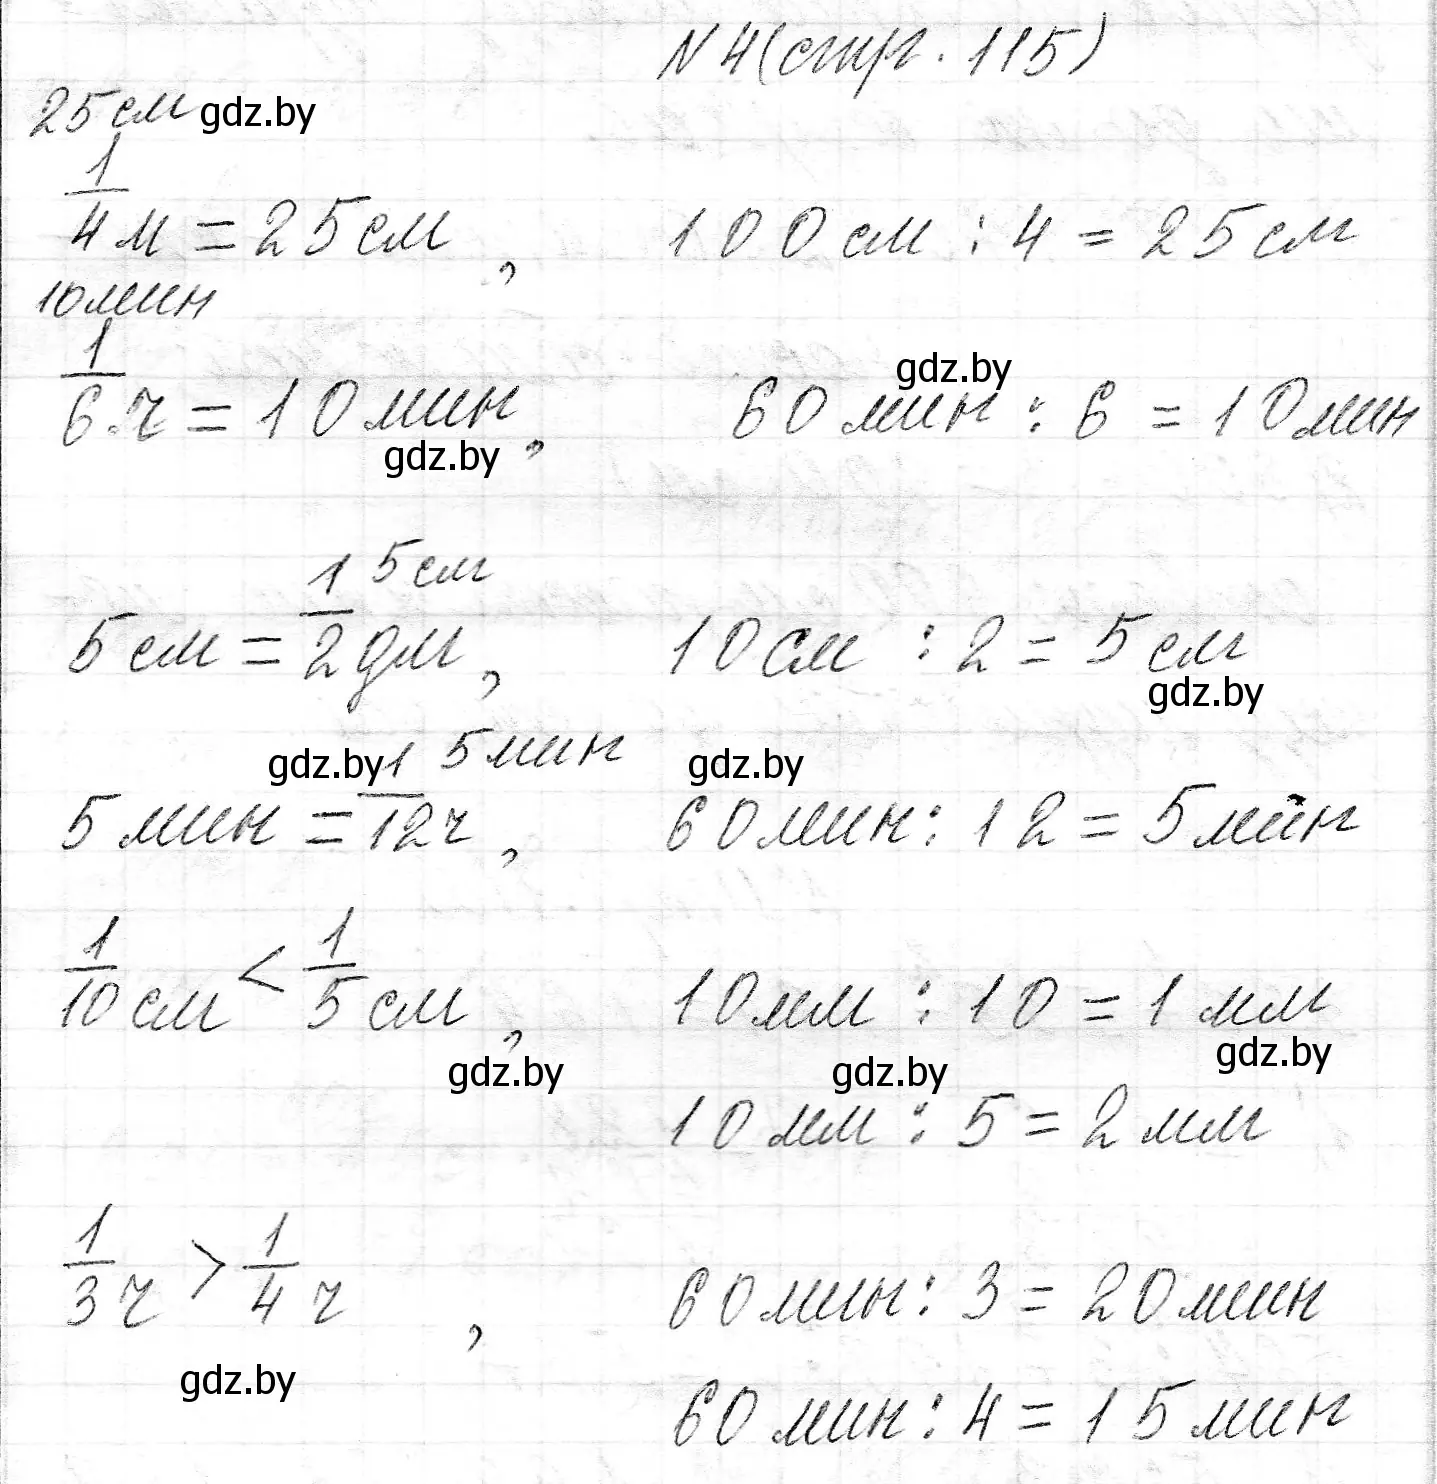 N 4 (стр. 115)
25 см gdz.by
1/4 м = 25 см, 100 см : 4 = 25 см
10 мин
gdz.by
1/6 ч = 10 мин, 60 мин : 6 = 10 мин
gdz.by
5 см
5 см = 1/2 дм, 10 см : 2 = 5 см
gdz.by
gdz.by 5 мин gdz.by
5 мин = 1/12 ч, 60 мин : 12 = 5 мин
1/10 см < 1/5 см, 10 мм : 10 = 1 мм
gdz.by gdz.by gdz.by
10 мм : 5 = 2 мм
1/3 ч > 1/4 ч, 60 мин : 3 = 20 мин
gdz.by
60 мин : 4 = 15 мин